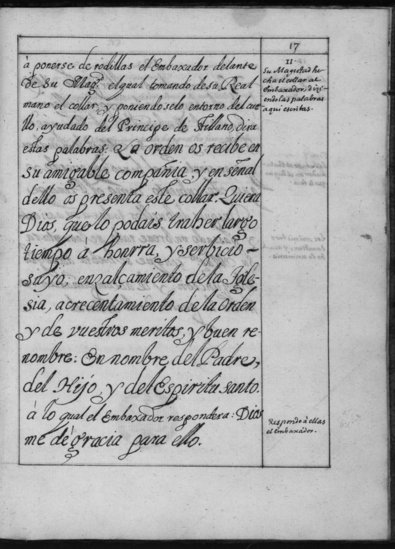 17
à ponerse de rodillas el Embaxador delante
de su Magd. el qual tomando de su Real
mano el collar, y poniendoselo entorno del cue
llo, ayudado del Principe de Fillano, dirà
estas palabras: La orden os recibe en
su amigable compañia, y en señal
dello os presenta este collar. Quiera
Dios, que lo podais traher largo
tiempo a honrra, y serbicio
suyo, enzalçamiento de la Igle-
sia, acrecentamiento de la Orden
y de vuestros meritos, y buen re-
nombre: En nombre del Padre,
del Hijo, y del Espiritu santo.
à lo qual el Embaxador respondera: Dios
me dè gracia para ello.
11
Su Magestad he-
cha el collar al
Embaxador, dizi
endo las palabras
aqui escritas.
Responde à ellas
el Embaxador.